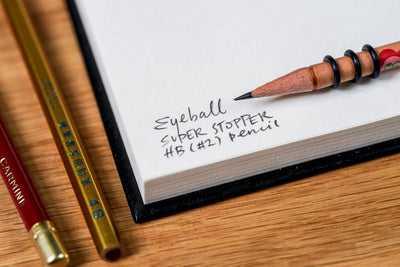 Eyeball
SUPER STOPPER
HB (#2) Pencil
4B
CARMINE